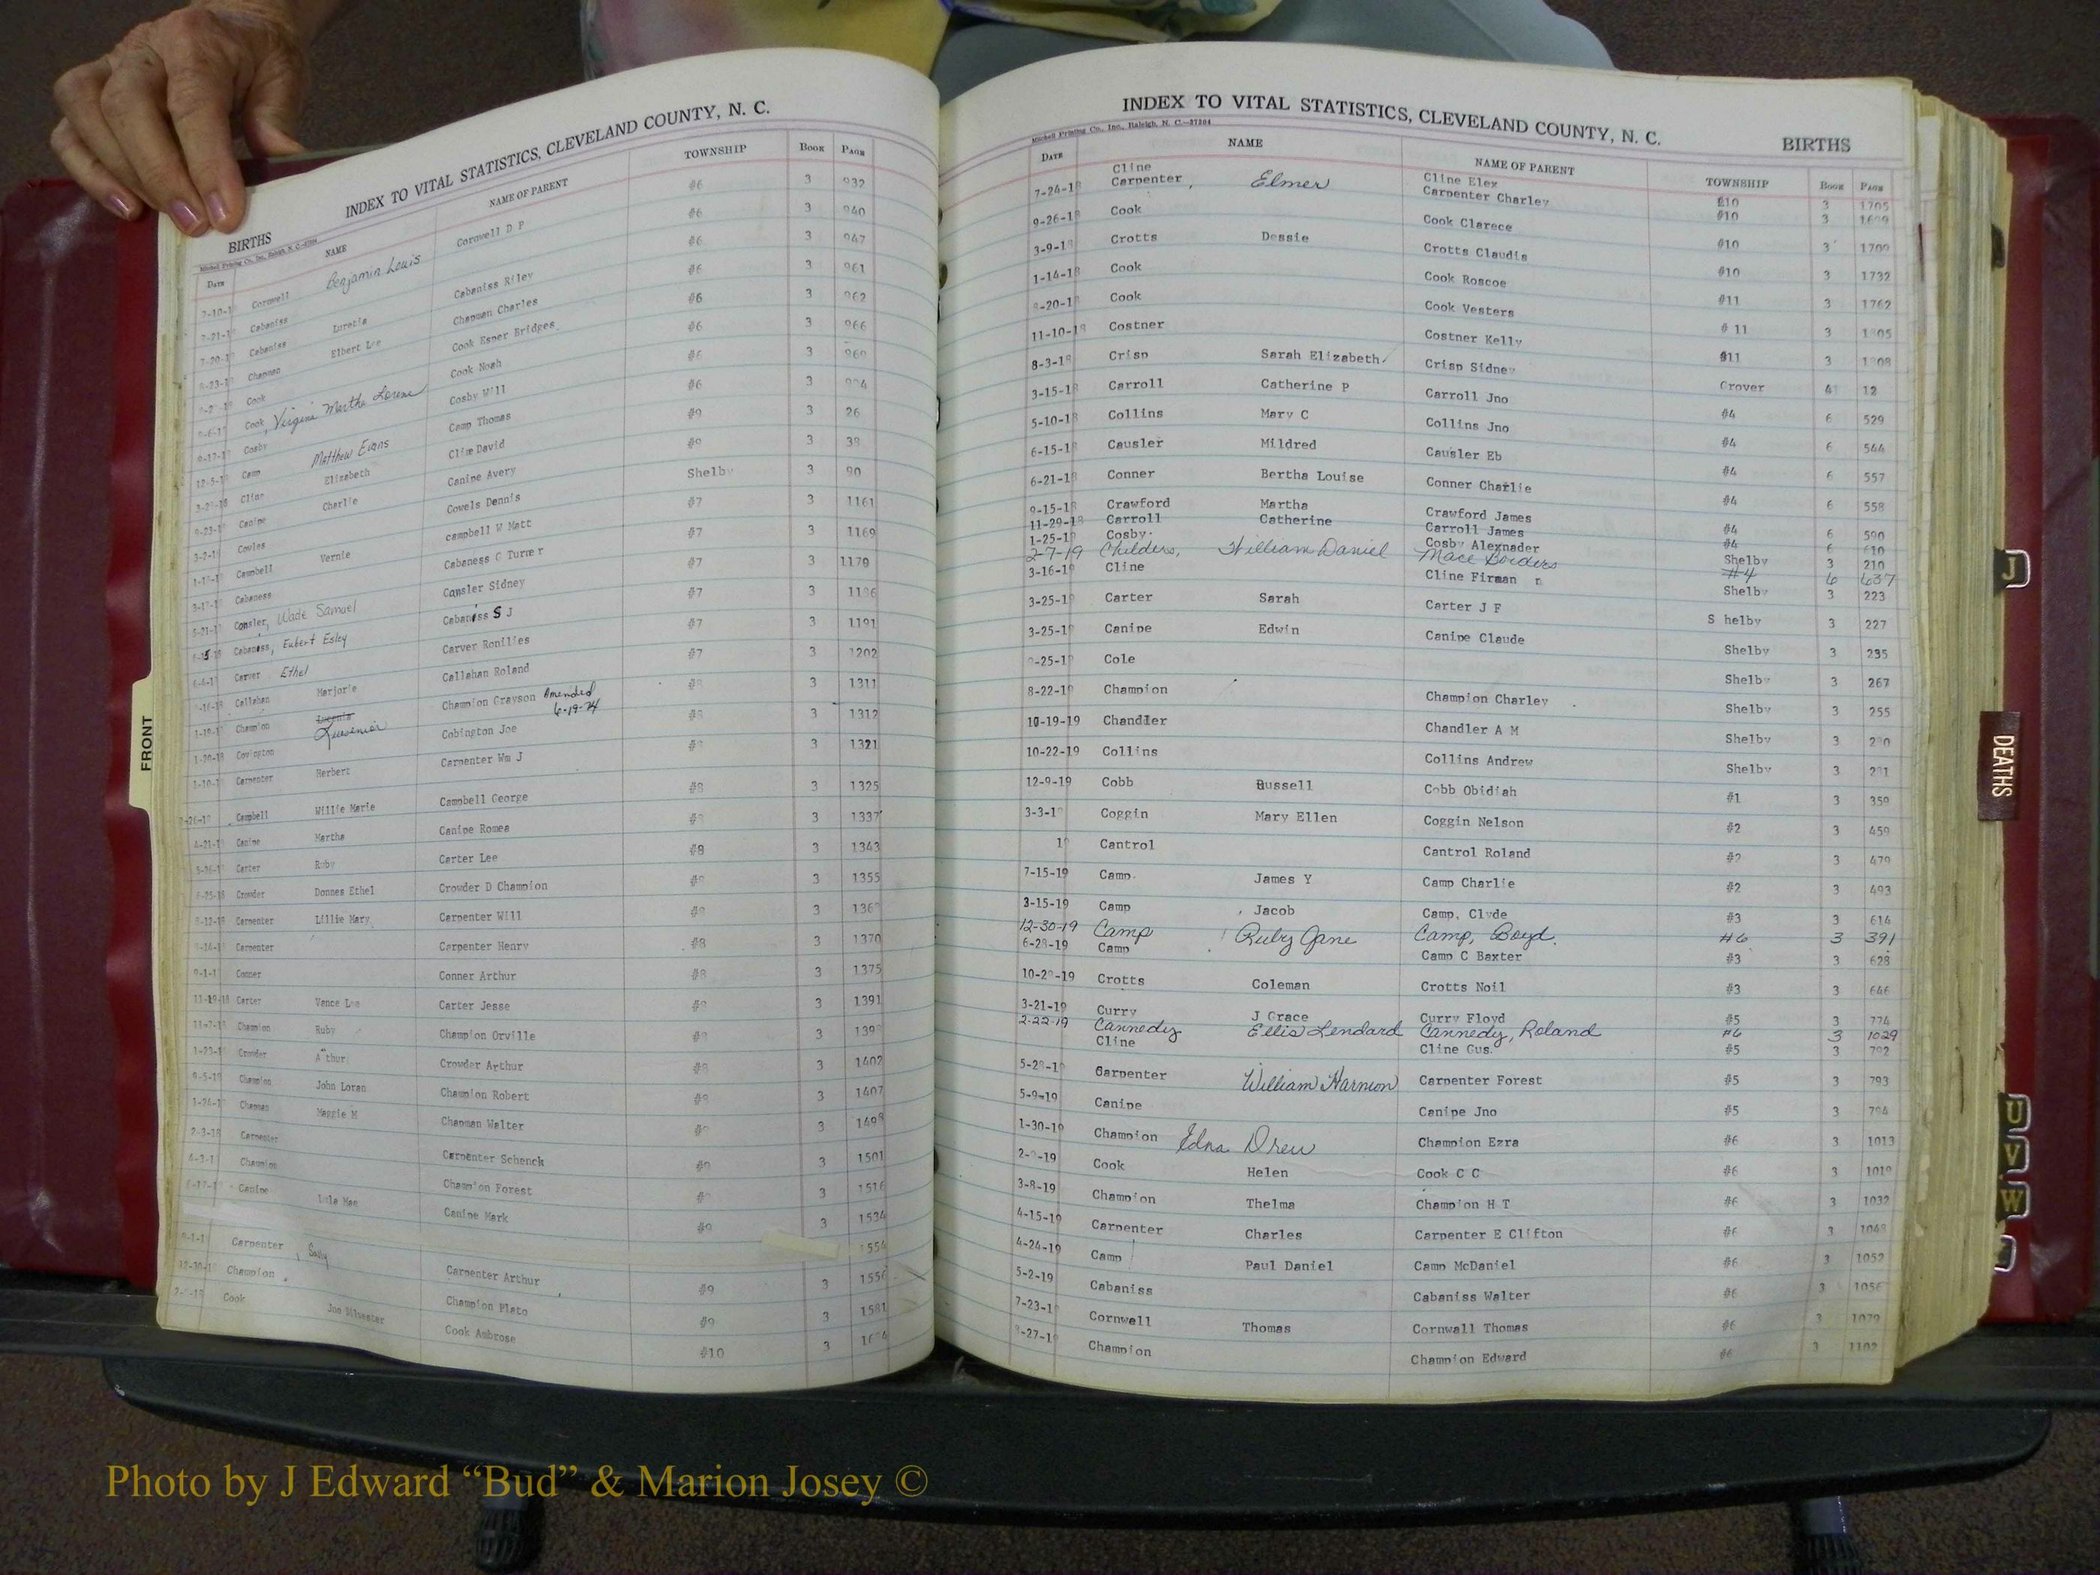 INDEX TO VITAL STATISTICS, CLEVELAND COUNTY, N. C.
BIRTHS
Mitchell Printing Co., Inc., Raleigh, N. C.—27204
DATE NAME NAME OF PARENT TOWNSHIP BOOK PAGE
Cornwell Benjamin Louis Cornwell D P #6 3 932
Cabaniss #6 3 940
Cabaniss Luretta Cabaniss Riley #6 3 947
Chapman Elbert Lee Chapman Charles #6 3 961
Cook Cook Esper Bridges #6 3 962
Cook, Virginia Martha Lorene Cook Noah #6 3 966
Cosby Cosby Will #6 3
Camp Matthew Evans Camp Thomas #6 3
Cline Elizabeth Cline David #9 3 26
Canipe Charlie Canipe Avery #9 3 38
Cowles Cowels Dennis Shelby 3 90
Campbell Vernie campbell W Matt #7 3 1161
Cabaness Cabaness G Turner #7 3 1169
Cansler, Wade Samuel Cansler Sidney #7 3 1179
Cabaness, Eubert Esley Cabaniss S J #7 3
Carver Ethel Carver Ronilies #7 3 1191
Callahan Marjorie Callahan Roland #7 3 1202
Champion Champion Grayson Amended 6-19-74 3 1311
Covington Cobington Joe 3 1312
Carpenter Herbert Carpenter Wm J 3 1321
Campbell Willie Marie Campbell George #8 3 1325
Canipe Martha Canipe Romea 3 1337
Carter Ruby Carter Lee #8 3 1343
Crowder Donnes Ethel Crowder D Champion 3 1355
Carpenter Lillie Mary Carpenter Will 3
Carpenter Carpenter Henry #8 3 1370
Conner Conner Arthur #8 3 1375
11-19-18 Carter Vance Lee Carter Jesse 3 1391
Champion Ruby Champion Orville 3
Crowder Arthur Crowder Arthur #8 3 1402
Champion John Loran Champion Robert 3 1407
Chapman Maggie M Chapman Walter 3
2-3-18 Carpenter Carpenter Schenck 3 1501
Champion Champion Forest 3 1516
Canipe Lula Mae Canipe Mark #9 3 1534
1554
Carpenter, Sally Carpenter Arthur #9 3 1556
Champion Champion Plato #9 3 1581
Cook Joe Silvester Cook Ambrose #10 3
INDEX TO VITAL STATISTICS, CLEVELAND COUNTY, N. C.
BIRTHS
Mitchell Printing Co., Inc., Raleigh, N. C.—27204
DATE NAME NAME OF PARENT TOWNSHIP BOOK PAGE
Cline Cline Elex #10 3 1705
7-24-18 Carpenter, Elmer Carpenter Charley #10 3 1699
9-26-18 Cook Cook Clarece #10 3 1709
3-9-18 Crotts Dessie Crotts Claudis #10 3 1732
1-14-18 Cook Cook Roscoe #11 3 1762
Cook Cook Vesters # 11 3
11-10-18 Costner Costner Kelly #11 3
8-3-18 Crisp Sarah Elizabeth Crisp Sidney Grover 41 12
3-15-18 Carroll Catherine P Carroll Jno #4 6 529
5-10-18 Collins Mary C Collins Jno #4 6 544
6-15-18 Causler Mildred Causler Eb #4 6 557
6-21-18 Conner Bertha Louise Conner Charlie #4 6 558
9-15-18 Crawford Martha Crawford James #4 6 590
11-29-18 Carroll Catherine Carroll James #4 6 610
1-25-19 Cosby Cosby Alexnader Shelby 3 210
2-7-19 Childers, William Daniel Mace Borders #4 6 637
3-16-19 Cline Cline Firman Shelby 3 223
3-25-19 Carter Sarah Carter J F S helby 3 227
3-25-19 Canipe Edwin Canipe Claude Shelby 3 235
Cole Shelby 3 267
8-22-19 Champion Champion Charley Shelby 3 255
10-19-19 Chandler Chandler A M Shelby 3
10-22-19 Collins Collins Andrew Shelby 3
12-9-19 Cobb Russell Cobb Obidiah #1 3 359
3-3-19 Coggin Mary Ellen Coggin Nelson #2 3 459
19 Cantrol Cantrol Roland #2 3 479
7-15-19 Camp James Y Camp Charlie #2 3 493
3-15-19 Camp Jacob Camp, Clyde #3 3 614
12-30-19 Camp Ruby Jane Camp, Boyd. #6 3 391
6-28-19 Camp Camp C Baxter #3 3 628
Crotts Coleman Crotts Noil #3 3 646
3-21-19 Curry J Grace Curry Floyd #5 3 774
2-22-19 Cannedy Ellis Lendard Cannedy, Roland #6 3 1029
Cline Cline Gus. #5 3 792
5-28-19 Carpenter William Harmon Carpenter Forest #5 3 793
5-9-19 Canipe Canipe Jno #5 3 794
1-30-19 Champion Edna Drew Champion Ezra #6 3 1013
Cook Helen Cook C C #6 3 1019
3-8-19 Champion Thelma Champion H T #6 3 1032
4-15-19 Carpenter Charles Carpenter E Clifton #6 3 1048
4-24-19 Camp Paul Daniel Camp McDaniel #6 3 1052
5-2-19 Cabaniss Cabaniss Walter #6 3 1056
7-23-19 Cornwell Thomas Cornwall Thomas #6 3 1079
Champion Champion Edward #6 3 1102
FRONT
J
DEATHS
U
V
W
Photo by J Edward “Bud” & Marion Josey ©